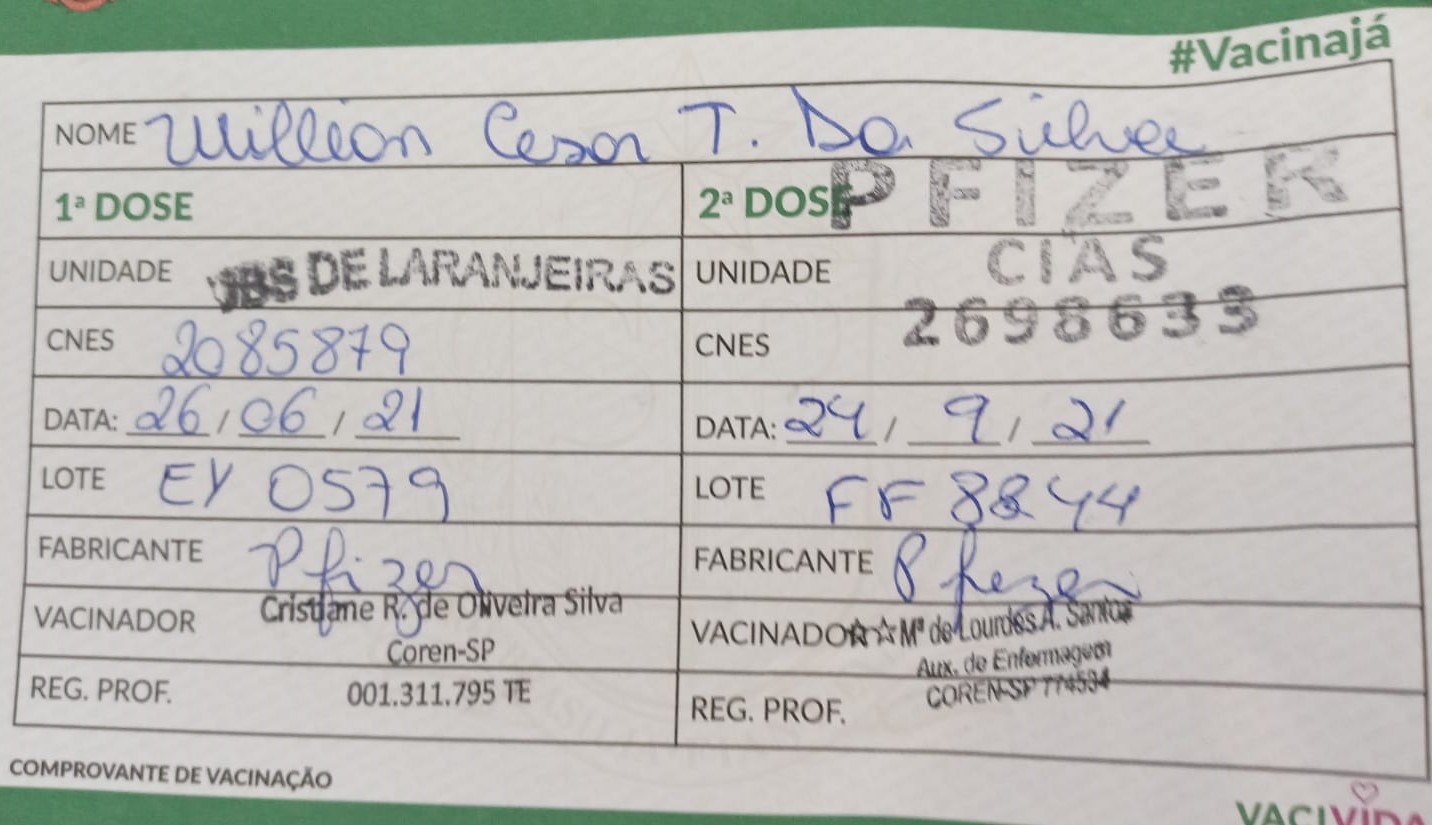 #Vacinajá
NOME Willian Cesar T. Da Silva
1ª DOSE
UNIDADE UBS DE LARANJEIRAS
CNES 2085879
DATA: 26/06/21
LOTE EY 0579
FABRICANTE Pfizer
VACINADOR Cristiane R. de Oliveira Silva
Coren-SP
REG. PROF. 001.311.795 TE
2ª DOSE PFIZER
UNIDADE CIAS
CNES 2698633
DATA: 24/9/21
LOTE FF 8844
FABRICANTE Pfizer
VACINADOR Mª de Lourdes A. Santos
Aux. de Enfermagem
COREN-SP 774594
REG. PROF.
COMPROVANTE DE VACINAÇÃO
VACIVIDA